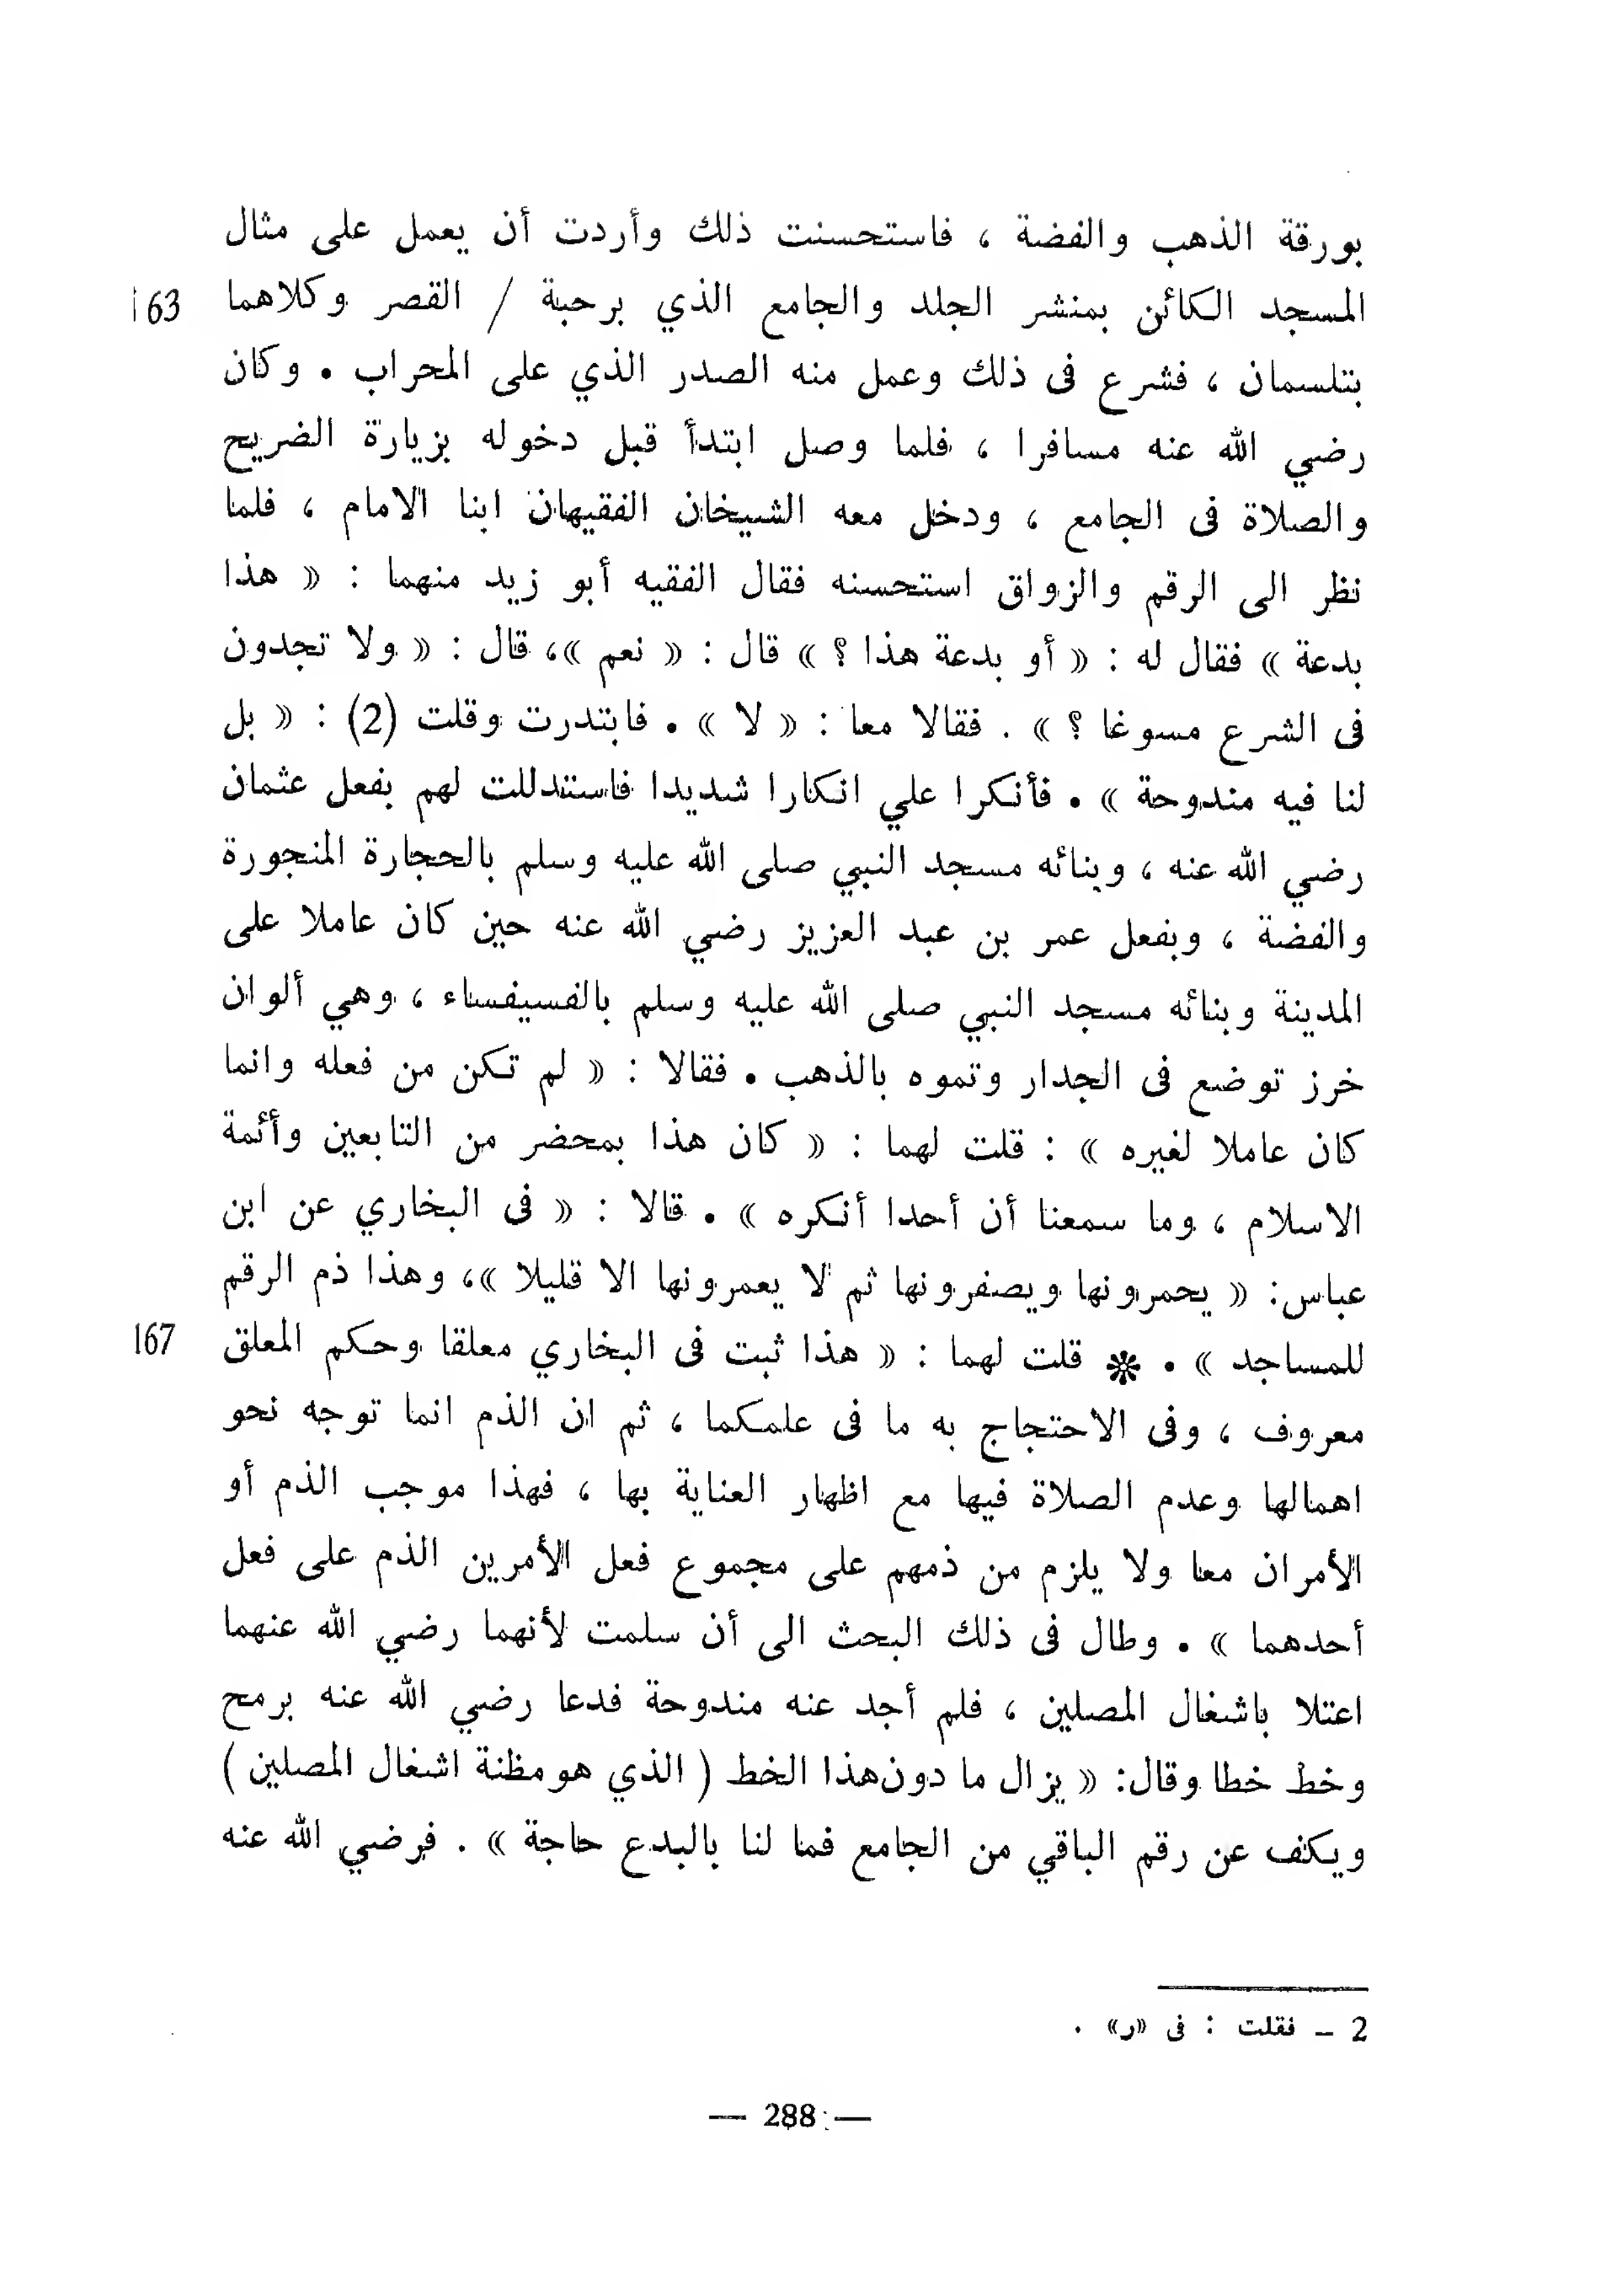 بورقة الذهب والفضة ، فاستحسنت ذلك وأردت أن يعمل على مثال
المسجد الكائن بمنشر الجلد والجامع الذي برحبة / القصر وكلاهما
163
بتلسمان ، فشرع فى ذلك وعمل منه الصدر الذي على المحراب . وكان
رضي الله عنه مسافرا ، فلما وصل ابتدأ قبل دخوله بزيارة الضريح
والصلاة فى الجامع ، ودخل معه الشيخان الفقيهان ابنا الامام ، فلما
نظر الى الرقم والزواق استحسنه فقال الفقيه أبو زيد منهما : « هذا
بدعة » فقال له : « أو بدعة هذا ؟ » قال : « نعم »، قال : « ولا تجدون
فى الشرع مسوغا ؟ » . فقالا معا : « لا » . فابتدرت وقلت (2) : « بل
لنا فيه مندوحة » . فأنكرا علي انكارا شديدا فاستدللت لهم بفعل عثمان
رضي الله عنه ، وبنائه مسجد النبي صلى الله عليه وسلم بالحجارة المنجورة
والفضة ، وبفعل عمر بن عبد العزيز رضي الله عنه حين كان عاملا على
المدينة وبنائه مسجد النبي صلى الله عليه وسلم بالفسيفساء ، وهي ألوان
خرز توضع فى الجدار وتموه بالذهب . فقالا : « لم تكن من فعله وانما
كان عاملا لغيره » : قلت لهما : « كان هذا بمحضر من التابعين وأئمة
الاسلام ، وما سمعنا أن أحدا أنكره » . قالا : « فى البخاري عن ابن
عباس: « يحمرونها ويصفرونها ثم لا يعمرونها الا قليلا »، وهذا ذم الرقم
للمساجد » . * قلت لهما : « هذا ثبت فى البخاري معلقا وحكم المعلق
167
معروف ، وفى الاحتجاج به ما فى علمكما ، ثم ان الذم انما توجه نحو
اهمالها وعدم الصلاة فيها مع اظهار العناية بها ، فهذا موجب الذم أو
الأمران معا ولا يلزم من ذمهم على مجموع فعل الأمرين الذم على فعل
أحدهما » . وطال فى ذلك البحث الى أن سلمت لأنهما رضي الله عنهما
اعتلا باشغال المصلين ، فلم أجد عنه مندوحة فدعا رضي الله عنه برمح
وخط خطا وقال: « يزال ما دون هذا الخط ( الذي هو مظنة اشغال المصلين )
ويكف عن رقم الباقي من الجامع فما لنا بالبدع حاجة » . فرضي الله عنه
2 ــ فقلت : فى «ر» .
— 288 —